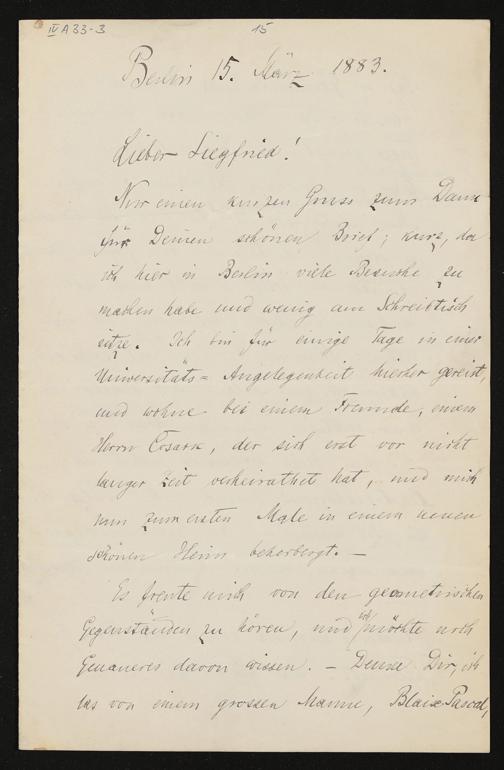 IV A 33-3
15
Berlin 15. März 1883.
Lieber Siegfried!
Nur einen kurzen Gruss zum Dank
für Deinen schönen Brief; kurz, da
ich hier in Berlin viele Besuche zu
machen habe und wenig am Schreibtisch
sitze. Ich bin für einige Tage in einer
Universitäts= Angelegenheit hierher gereist,
und wohne bei einem Freunde, einem
Herrn, der sich erst vor nicht
langer Zeit verheirathet hat, und mich
nun zum ersten Male in einem neuen
schönen Heim beherbergt. —
Es freute mich von den geometrischen
Gegenständen zu hören, und ich möchte noch
Genaueres davon wissen. — Denke Dir, ich
las von einem grossen Manne, Blaise Pascal,